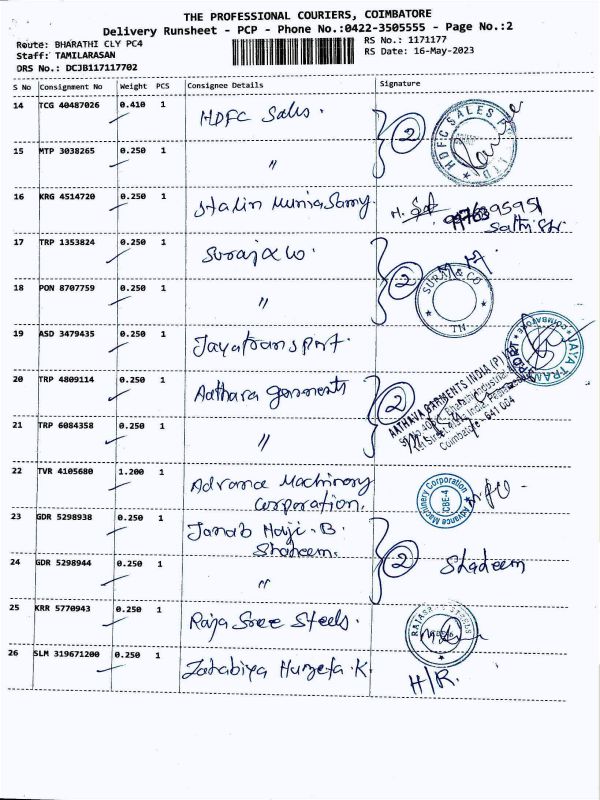 THE PROFESSIONAL COURIERS, COIMBATORE
Delivery Runsheet - PCP - Phone No.:0422-3505555 - Page No.:2
Route: BHARATHI CLY PC4
Staff: TAMILARASAN
DRS No.: DCJB117117702
RS No.: 1171177
RS Date: 16-May-2023
S No Consignment No Weight PCS Consignee Details Signature
14 TCG 40487026 0.410 1 HDFC Sales. 2
HDFC SALES
15 MTP 3038265 0.250 1 "
16 KRG 4514720 0.250 1 Stalin Muniasamy.
17 TRP 1353824 0.250 1 Suraj & Co. 2
SURAJ & CO
TN
18 PON 8707759 0.250 1 "
19 ASD 3479435 0.250 1 Jayatransport.
JAYA TRANSPORT COIMBATORE
20 TRP 4809114 0.250 1 Aathava garments 2
AATHAVA GARMENTS INDIA (P)
Coimbatore - 641 004
21 TRP 6084358 0.250 1 "
22 TVR 4105680 1.200 1 Advance Machinery
Corporation.
Advance Machinery Corporation
CBE-4
23 GDR 5298938 0.250 1 Janab Haji. B.
Shadeem. 2
24 GDR 5298944 0.250 1 " Shadeem
25 KRR 5770943 0.250 1 Raja Sree Steels.
26 SLM 319671200 0.250 1 Zahabiya Huzefa.K.
H/R.